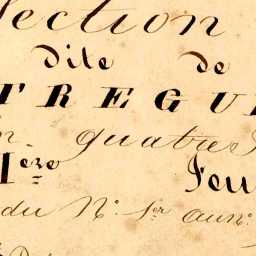 Section
dite de
TREGU
en quatre
1ère Feu
du N° 1er au n°